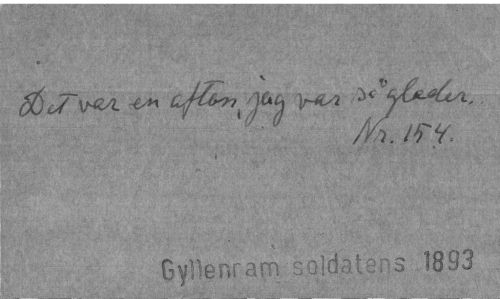 Det var en afton, jag var så glader.
Nr. 154.
Gyllenram soldatens 1893